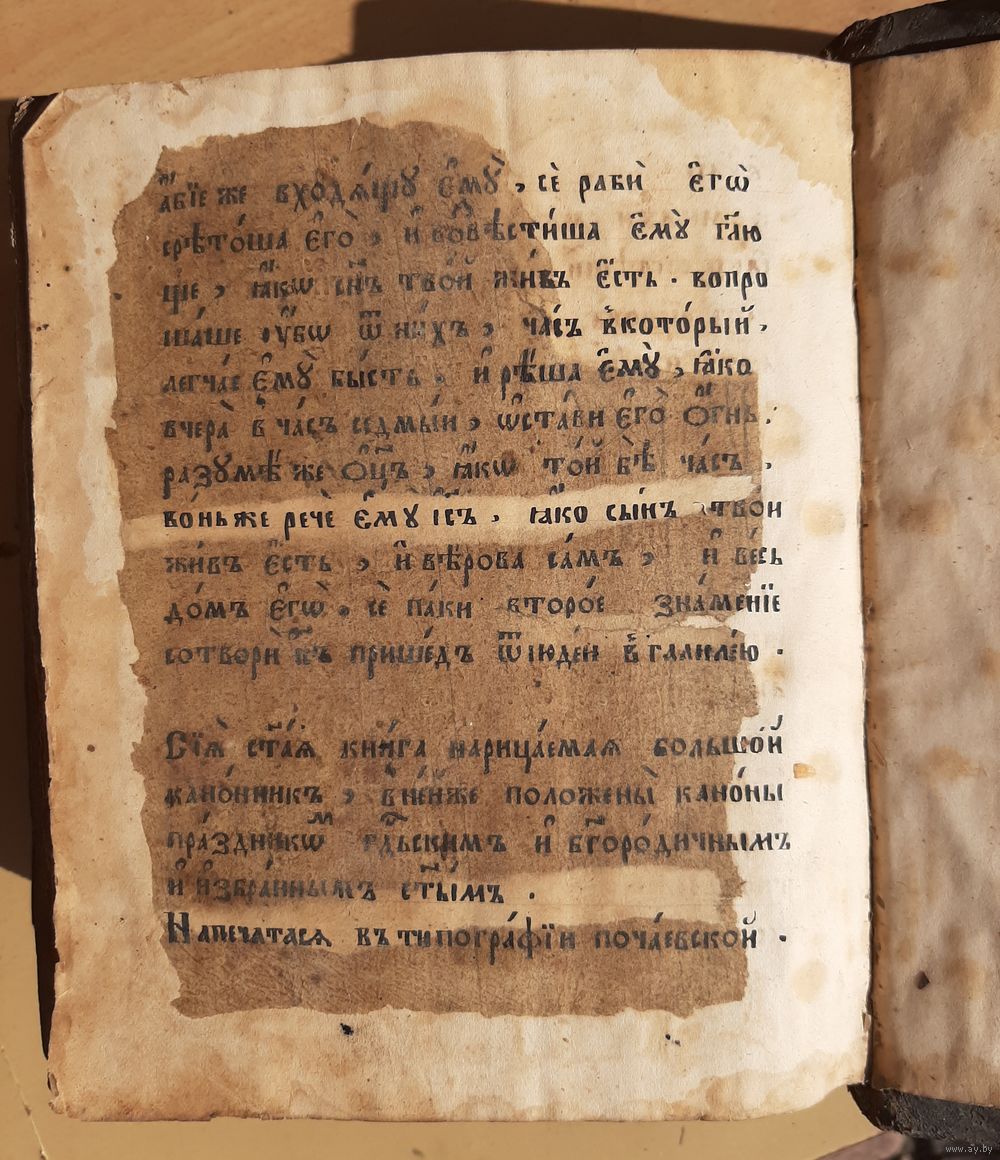 абїе же входѧ́щꙋ є҆мꙋ̀, сѐ рабѝ є҆гѡ̀
срѣто́ша є҆го̀, и҆ возвѣсти́ша є҆мꙋ̀ гл҃ю
ще, ꙗ҆́кѡ сн҃ъ тво́й жи́въ є҆́сть. вопро
ша́ше ᲂу҆́бѡ ѿ ни́хъ, ча́съ в̾кото́рый,
легча́е є҆мꙋ̀ бы́сть, и҆ рѣ́ша є҆мꙋ̀, ꙗ҆́ко
вчера̀ в̾ ча́съ седмы́й, ѡ҆ста́ви є҆го̀ ѻ҆́гнь.
разꙋмѣ́ же ѻ҆ц҃ъ, ꙗ҆́кѡ то́й бѣ̀ ча́съ,
во́ньже речѐ є҆мꙋ̀ і҆с҃ъ, ꙗ҆́ко сы́нъ тво́и
жи́въ є҆́сть, и҆ вѣ́рова са́мъ, и҆ ве́сь
до́мъ є҆гѡ̀. сѐ па́ки второ́е зна́менїе
сотворѝ і҆с҃ъ прише́дъ ѿ і҆юде́и в̾ галиле́ю.
Сїѧ̀ ст҃а́ѧ кни́га нарица́емаѧ большо́й
кано́нникъ, в̾ не́йже положены̀ кано́ны
пра́здникѡм гдⷭ҇ьскимъ и҆ бг҃оро́дичнымъ
и҆ и҆збра́ннымъ ст҃ы́мъ.
Напечатасѧ въ типогра́фїи поча́евской.
www.ay.by